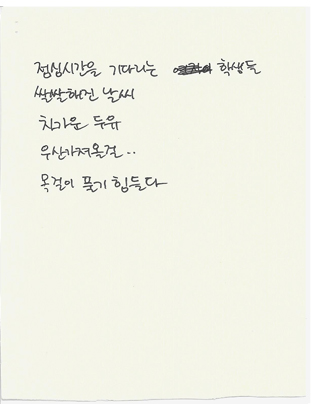 점심시간을 기다리는 학생들
쌀쌀해진 날씨
차가운 두유
우산가져올걸..
목걸이 풀기 힘들다